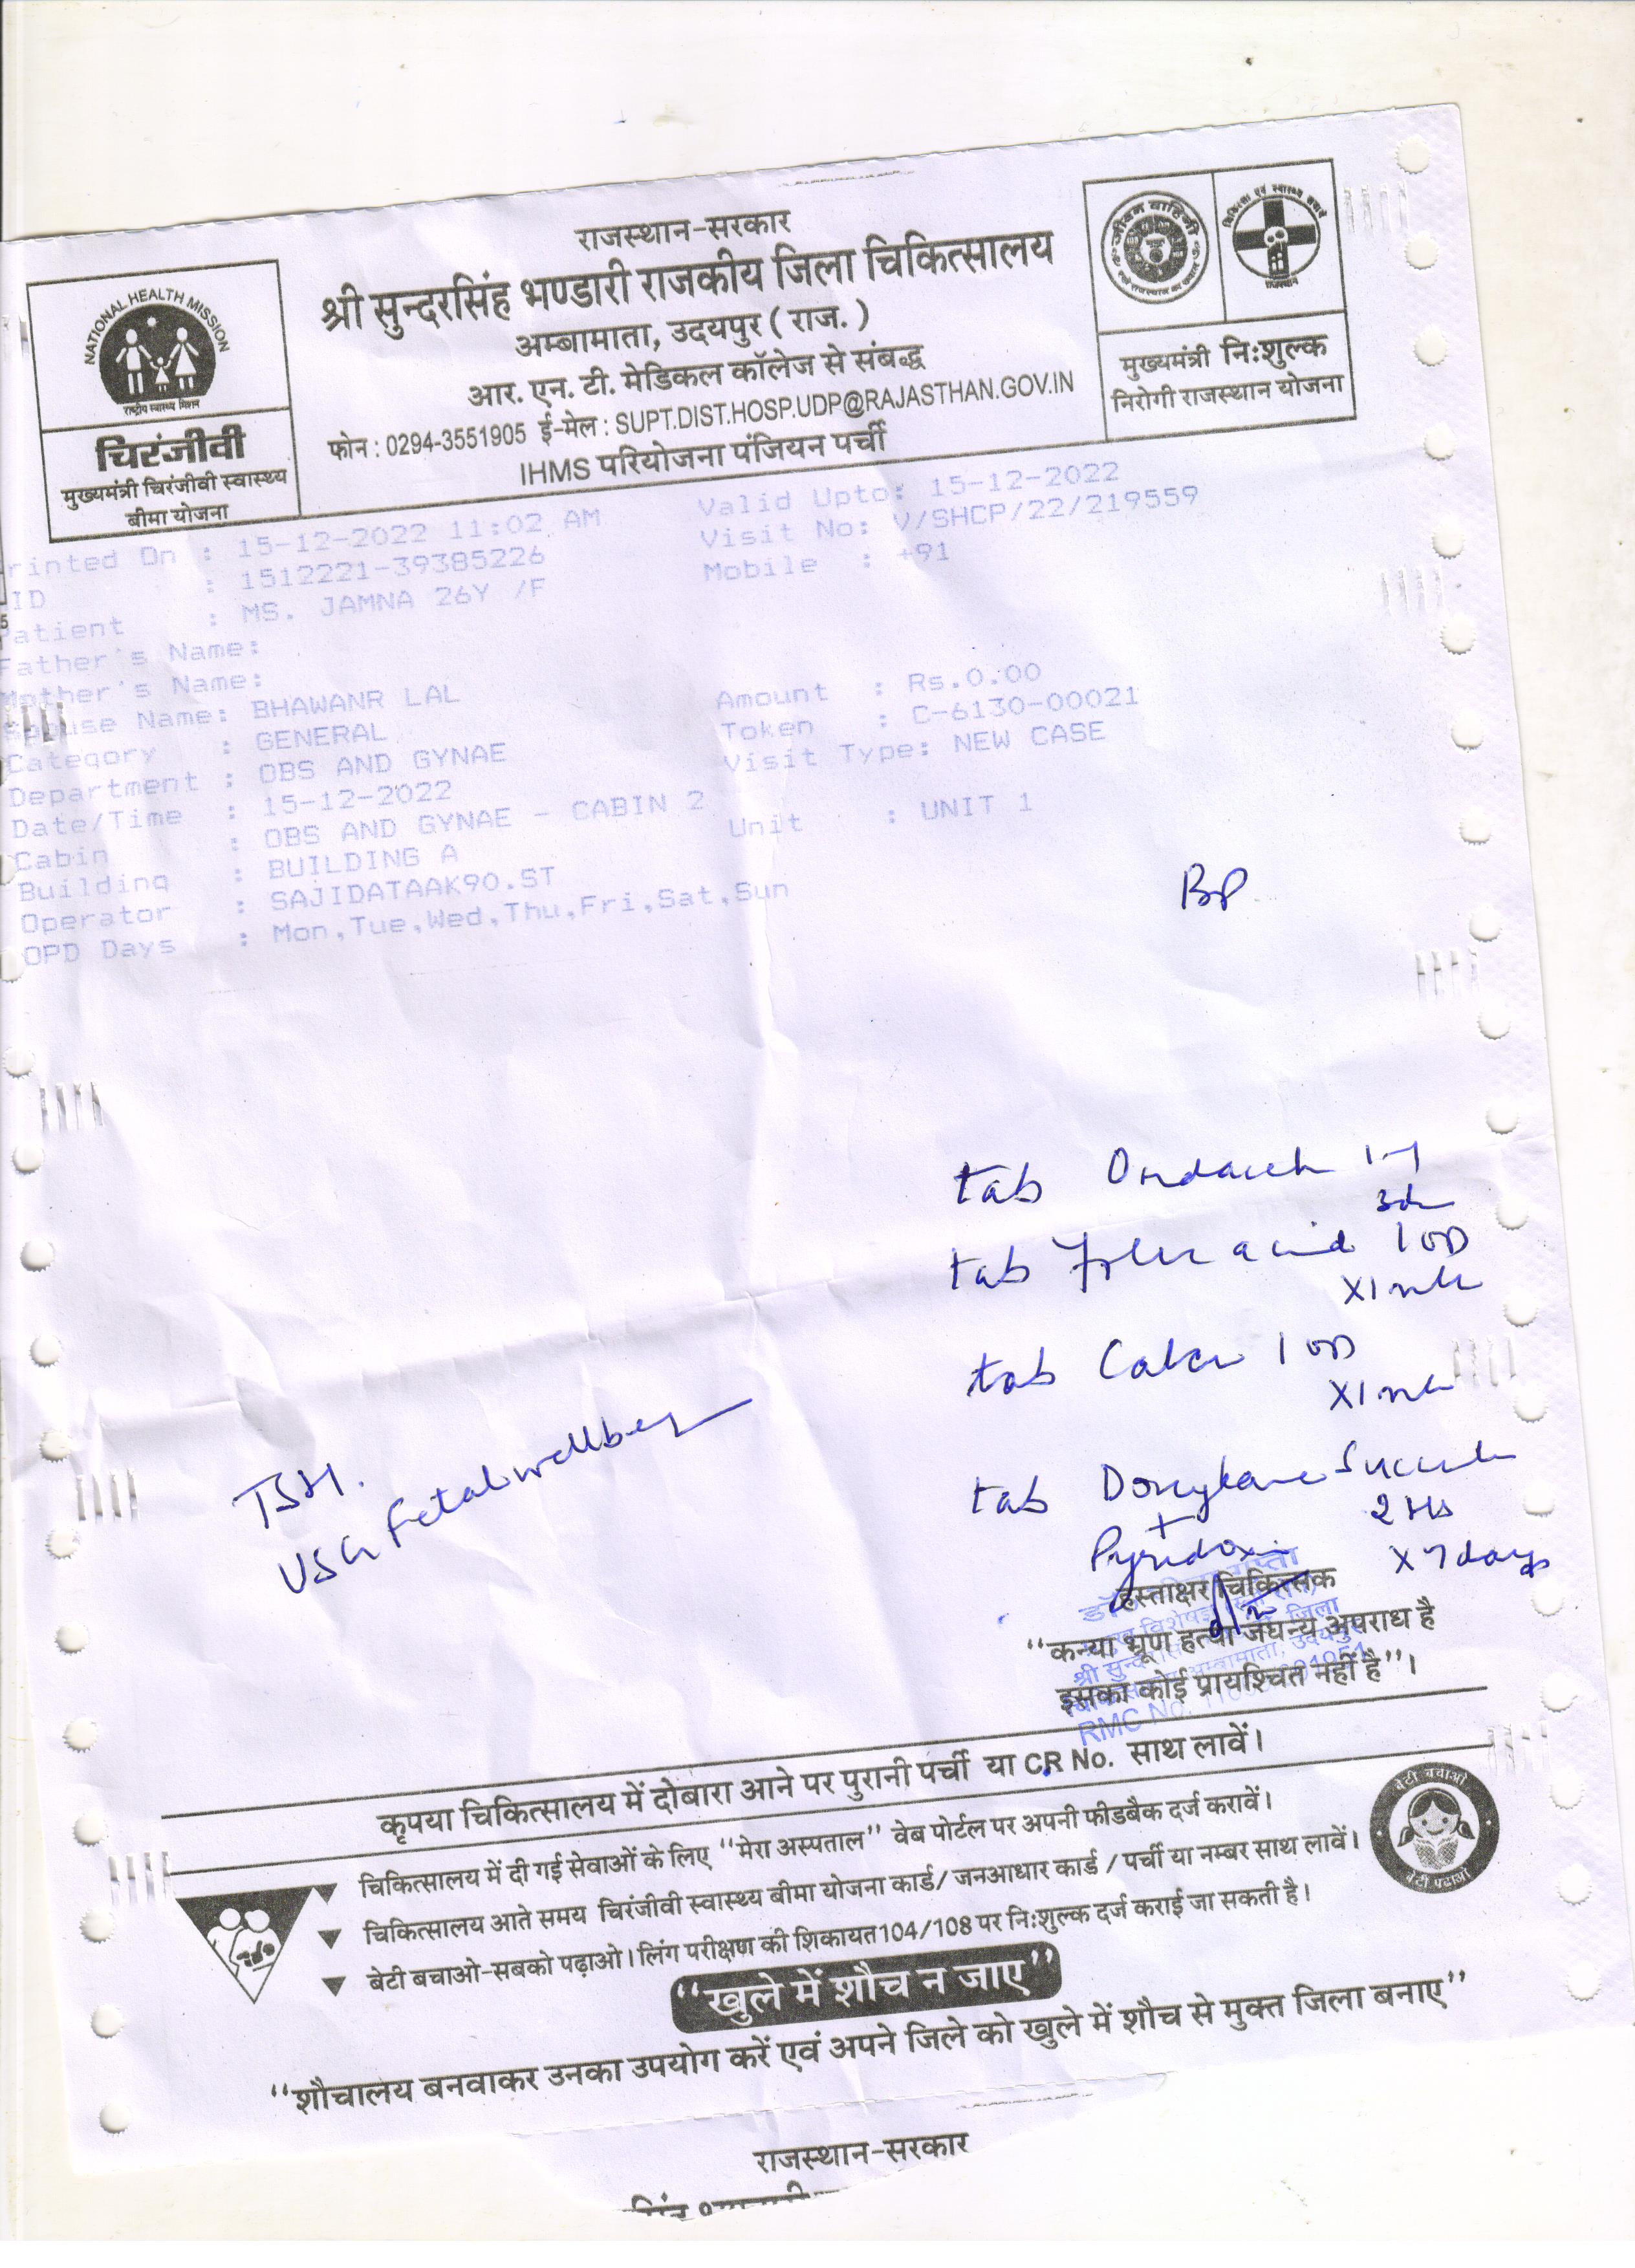 राजस्थान-सरकार
श्री सुन्दरसिंह भण्डारी राजकीय जिला चिकित्सालय
अम्बामाता, उदयपुर ( राज. )
आर. एन. टी. मेडिकल कॉलेज से संबद्ध
फोन : 0294-3551905 ई-मेल : SUPT.DIST.HOSP.UDP@RAJASTHAN.GOV.IN
IHMS परियोजना पंजियन पर्ची
NATIONAL HEALTH MISSION
राष्ट्रीय स्वास्थ्य मिशन
चिरंजीवी
मुख्यमंत्री चिरंजीवी स्वास्थ्य
बीमा योजना
राजस्थान
मुख्यमंत्री निःशुल्क
निरोगी राजस्थान योजना
rinted On : 15-12-2022 11:02 AM Valid Upto: 15-12-2022
ID : 1512221-39385226 Visit No: V/SHCP/22/219559
Patient : MS. JAMNA 26Y /F Mobile : +91
Father's Name:
Mother's Name:
Spouse Name: BHAWANR LAL Amount : Rs.0.00
Category : GENERAL Token : C-6130-00021
Department : OBS AND GYNAE Visit Type: NEW CASE
Date/Time : 15-12-2022
Cabin : OBS AND GYNAE - CABIN 2 Unit : UNIT 1
Building : BUILDING A
Operator : SAJIDATAAK90.ST
OPD Days : Mon,Tue,Wed,Thu,Fri,Sat,Sun
BP
tab 1-1
tab Folic acid 1 OD
X1
tab 1 OD
X1
TSH.
USG Fetal wellbeing
tab
+ 2 HS
X 7 days
हस्ताक्षर चिकित्सक
"कन्या भ्रूण हत्या जघन्य अपराध है
इसका कोई प्रायश्चित नहीं है"।
RMC No.
कृपया चिकित्सालय में दोबारा आने पर पुरानी पर्ची या CR No. साथ लावें।
▼ चिकित्सालय में दी गई सेवाओं के लिए "मेरा अस्पताल" वेब पोर्टल पर अपनी फीडबैक दर्ज करावें।
▼ चिकित्सालय आते समय चिरंजीवी स्वास्थ्य बीमा योजना कार्ड/ जनआधार कार्ड / पर्ची या नम्बर साथ लावें।
▼ बेटी बचाओ-सबको पढ़ाओ। लिंग परीक्षण की शिकायत 104/108 पर निःशुल्क दर्ज कराई जा सकती है।
बेटी बचाओ
बेटी पढ़ाओ
"खुले में शौच न जाए"
"शौचालय बनवाकर उनका उपयोग करें एवं अपने जिले को खुले में शौच से मुक्त जिला बनाए"
राजस्थान-सरकार